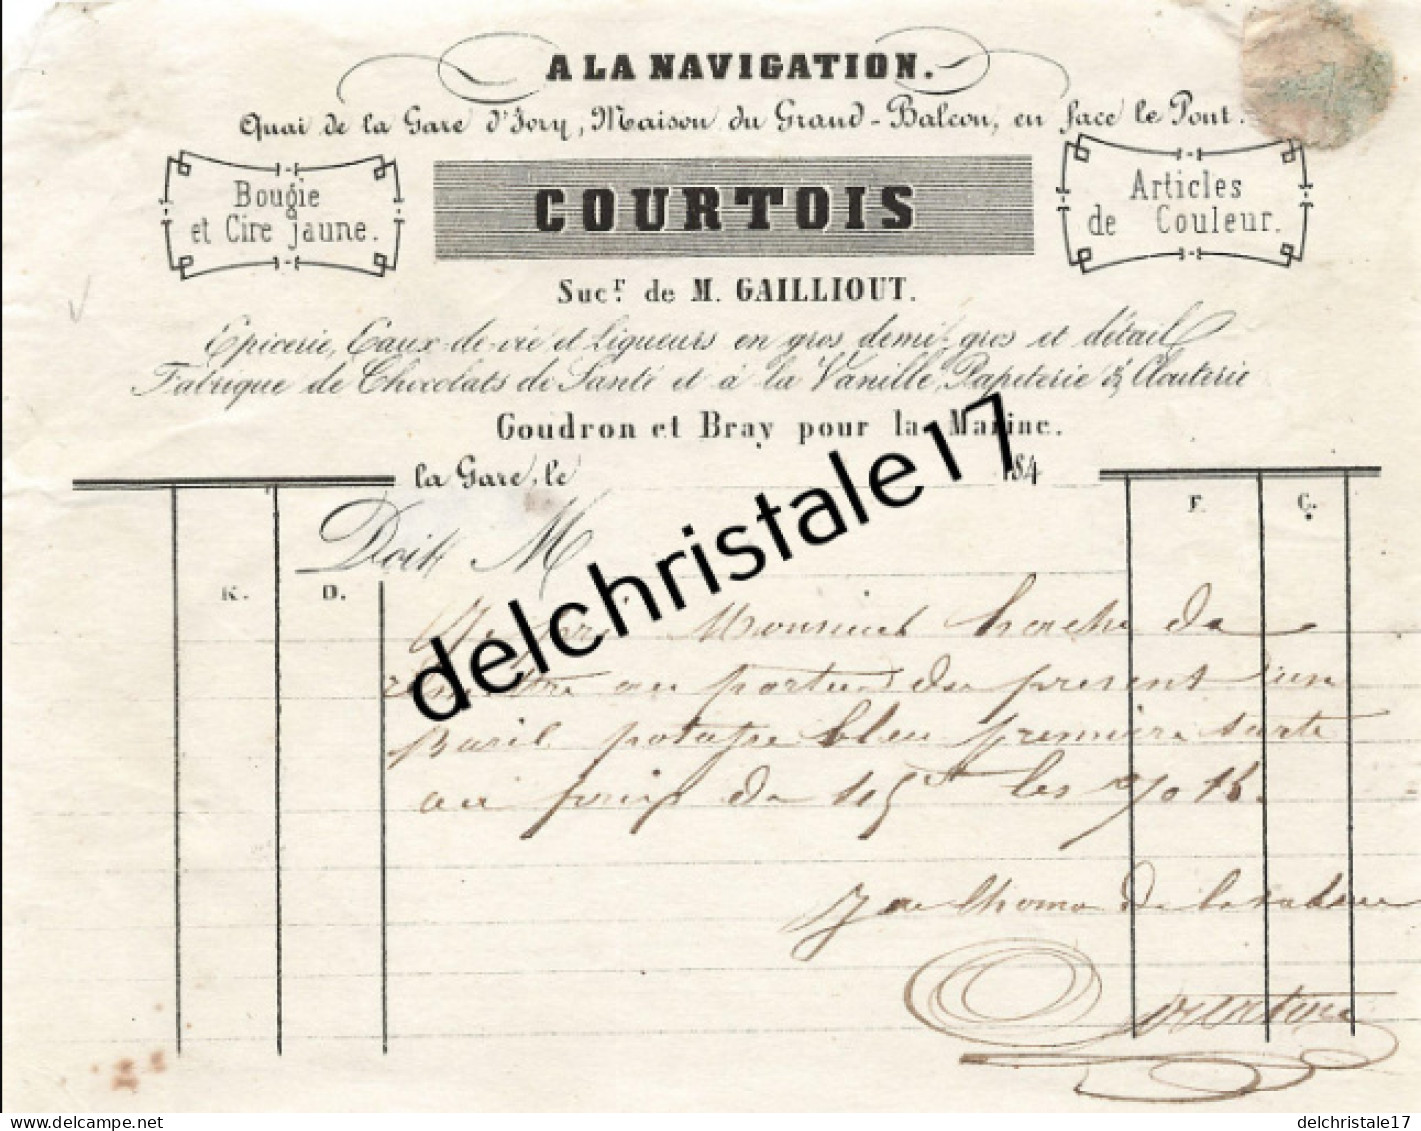 A LA NAVIGATION.
Quai de la Gare d'Ivry, Maison du Grand-Balcon, en face le Pont.
Bougie
et Cire jaune.
COURTOIS
Articles
de Couleur.
Sucr. de M. GAILLIOUT.
Epicerie, Eaux-de-vie et Liqueurs en gros demi-gros et détail
Fabrique de Chocolats de Santé et à la Vanille, Papeterie & Clouterie
Goudron et Bray pour la Marine.
la Gare, le 184
F. C.
Doit M
K. D.
Je Monsieur de
au porteur du present un
Baril potasse bleu première sorte
au prix de 115 les % K.
delchristale17
delcampe.net
delchristale17